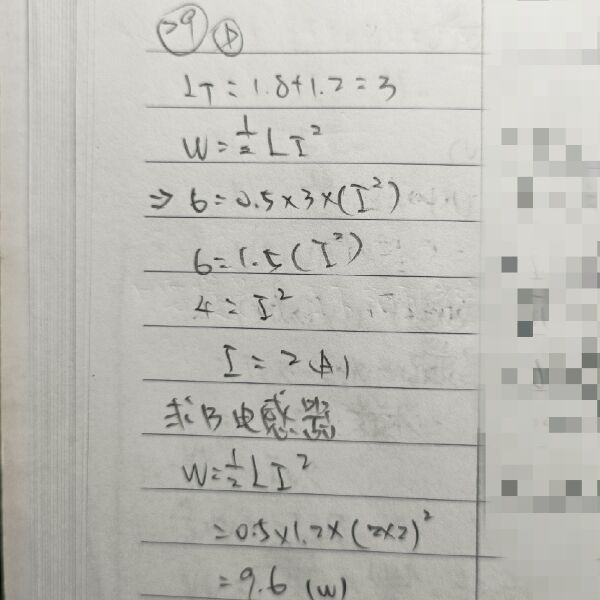 29 A
LT = 1.8+1.2 = 3
W = 1/2 L I²
⇒ 6 = 0.5 × 3 × (I²)
6 = 1.5 (I²)
4 = I²
I = 2 (A)
求B電感器
W = 1/2 L I²
= 0.5 × 1.2 × (2×2)²
= 9.6 (W)